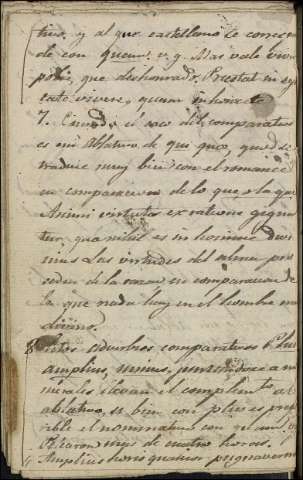 tivo, y al que castellano le correspon
de con quam, v. g. Mas vale vivir
pobre, que deshonrado. Præstat in eg
estate vivere, quam inhoneste
7. Cuando el caso del comparativo
es un ablativo de qui quæ, quod se
traduce muy bien con el romance
en comparacion de lo que, o la que
Animi virtutes ex ratione gignun
tur, qua nihil est in homine divi
nius Las virtudes del alma pro
ceden de la razon en comparacion de
la que nada hay en el hombre mas
divino.
8 Estos adverbios comparativos Plus
amplius, minus, junto a nu
merales llevan el complemento al
ablativo, si bien con plus es pref
rible el nominativo con quam
Pelearon mas de cuatro horas.
Amplius horis quatuor pugnaverunt